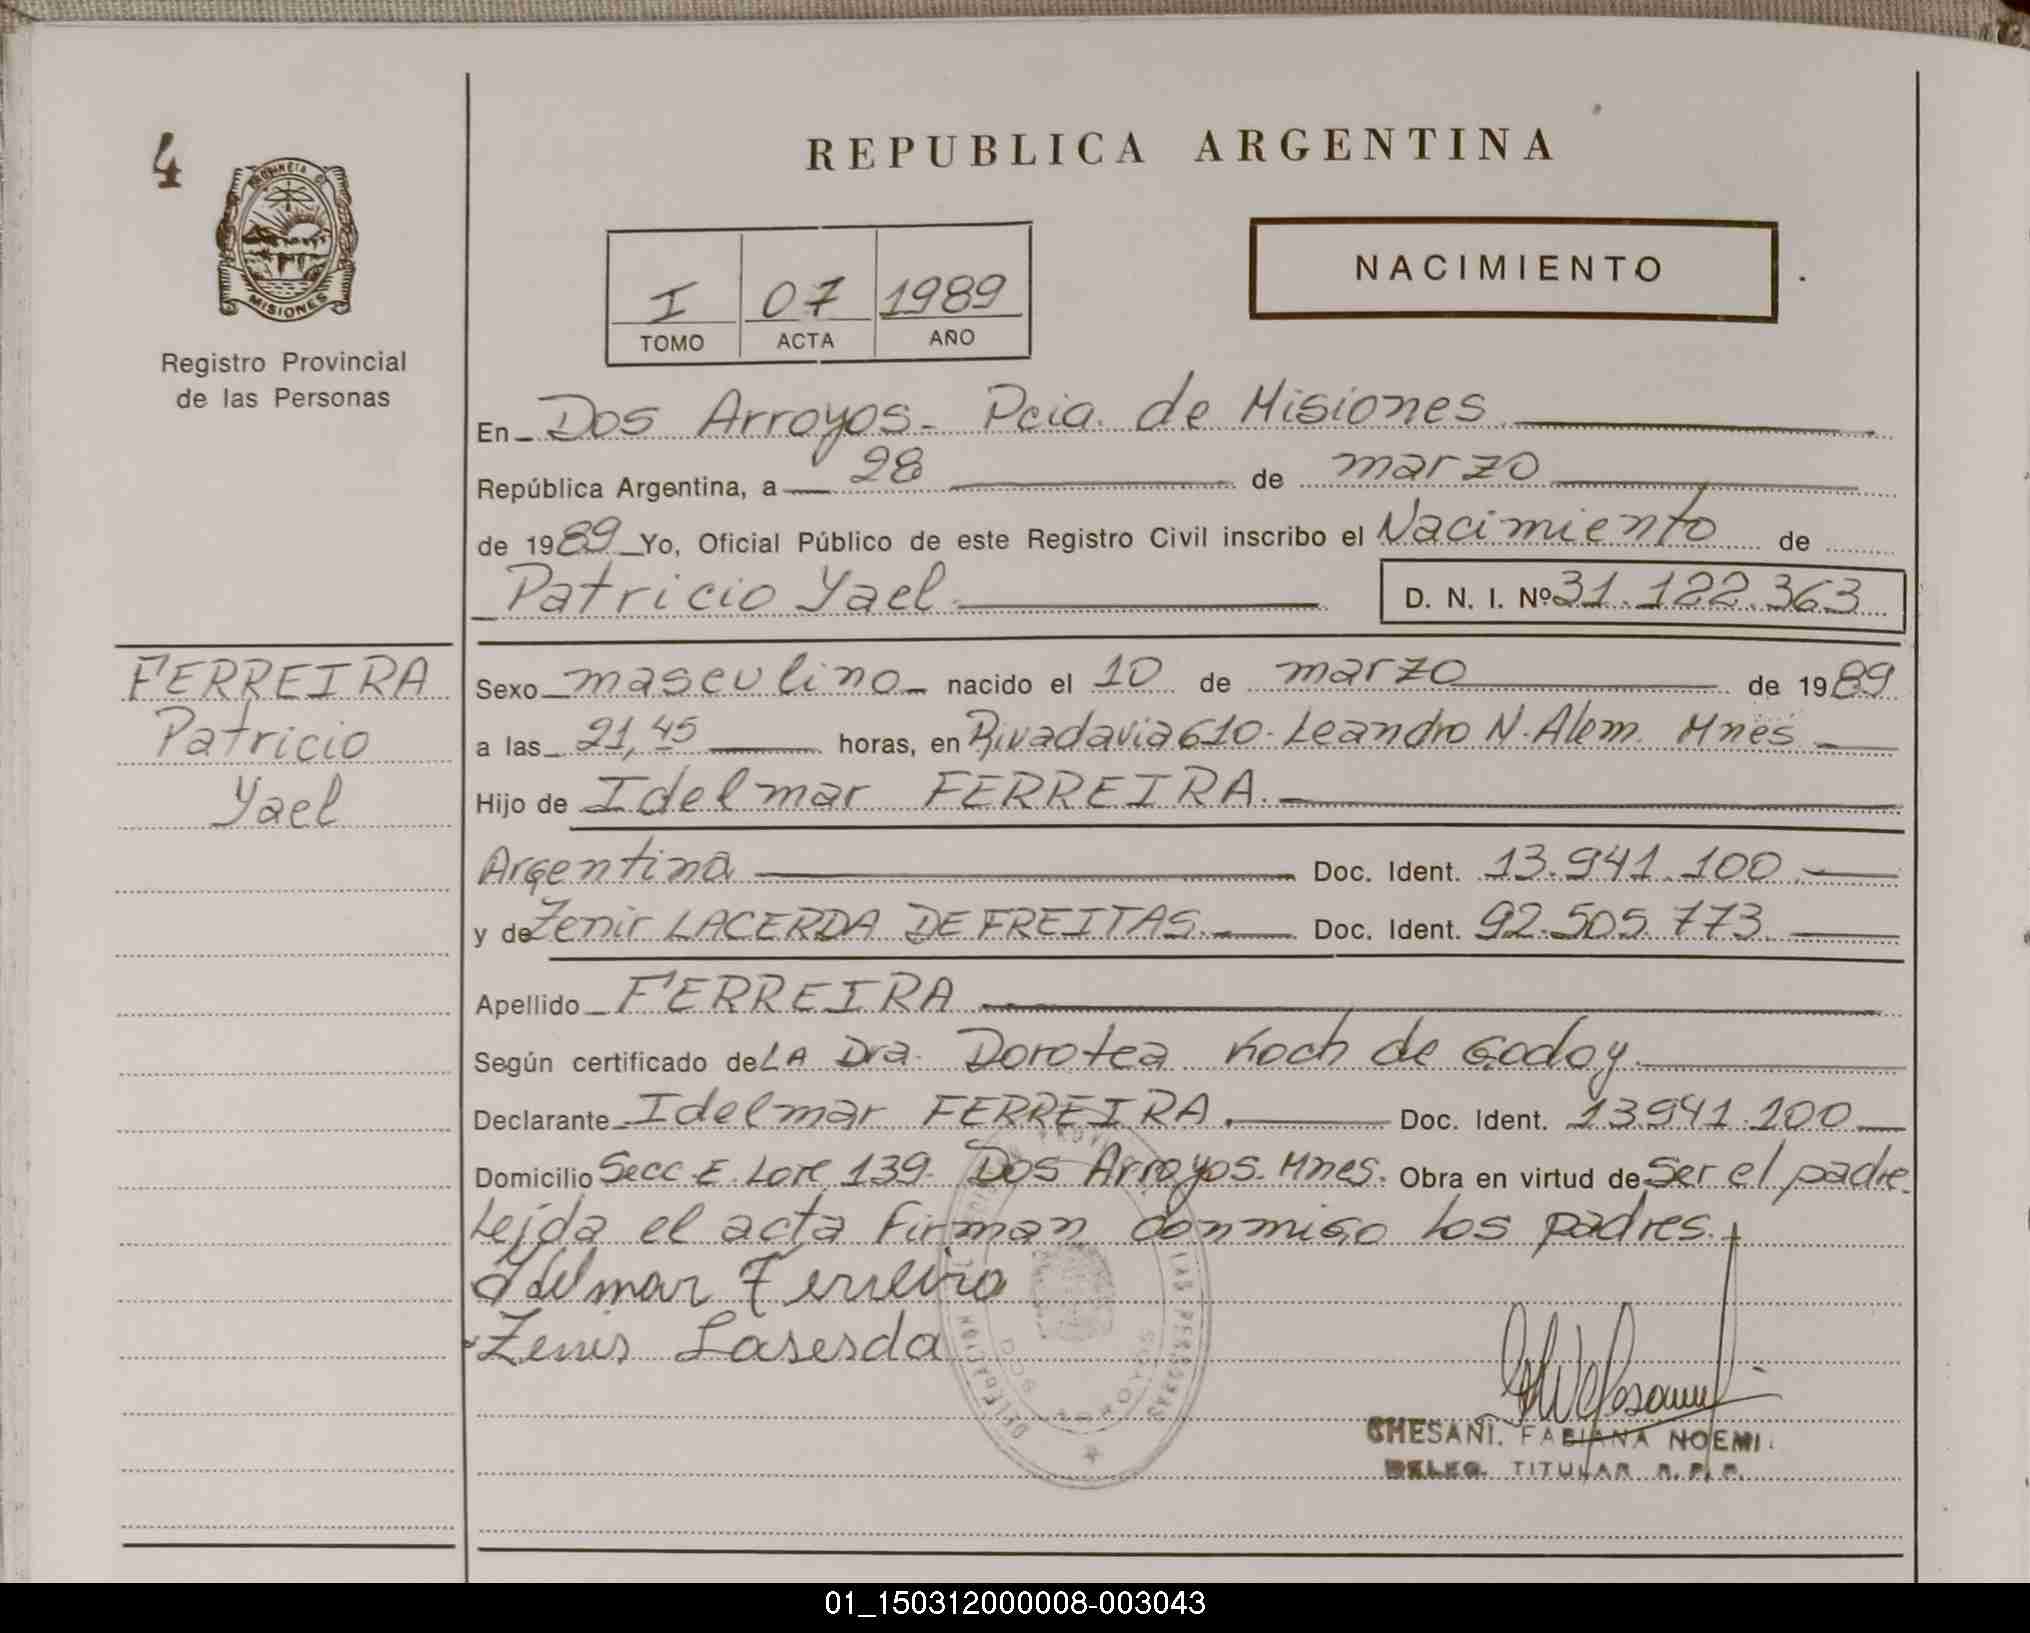 4
PROVINCIA DE
MISIONES
Registro Provincial
de las Personas
REPUBLICA ARGENTINA
I 07 1989
TOMO ACTA AÑO
NACIMIENTO
En Dos Arroyos - Pcia. de Misiones
República Argentina, a 28 de marzo
de 1989 Yo, Oficial Público de este Registro Civil inscribo el Nacimiento de
Patricio Yael. D. N. I. Nº 31.122.363
FERREIRA
Patricio
Yael
Sexo masculino nacido el 10 de marzo de 1989
a las 21,45 horas, en Rivadavia 610. Leandro N. Alem. Mnes
Hijo de Idelmar FERREIRA.
Argentina Doc. Ident. 13.941.100
y de Zenir LACERDA DE FREITAS. Doc. Ident. 92.505.773
Apellido FERREIRA
Según certificado de LA Dra. Dorotea Koch de Godoy.
Declarante Idelmar FERREIRA. Doc. Ident. 13.941.100
Domicilio Secc E. Lote 139. Dos Arroyos. Mnes. Obra en virtud de ser el padre.
Leida el acta firman conmigo los padres.
Idelmar Ferreira
Zenir Laserda
DELEGACION DOS ARROYOS
LAS PERSONAS
GHESANI. FABIANA NOEMI.
DELEG. TITULAR R. P. P.
01_150312000008-003043